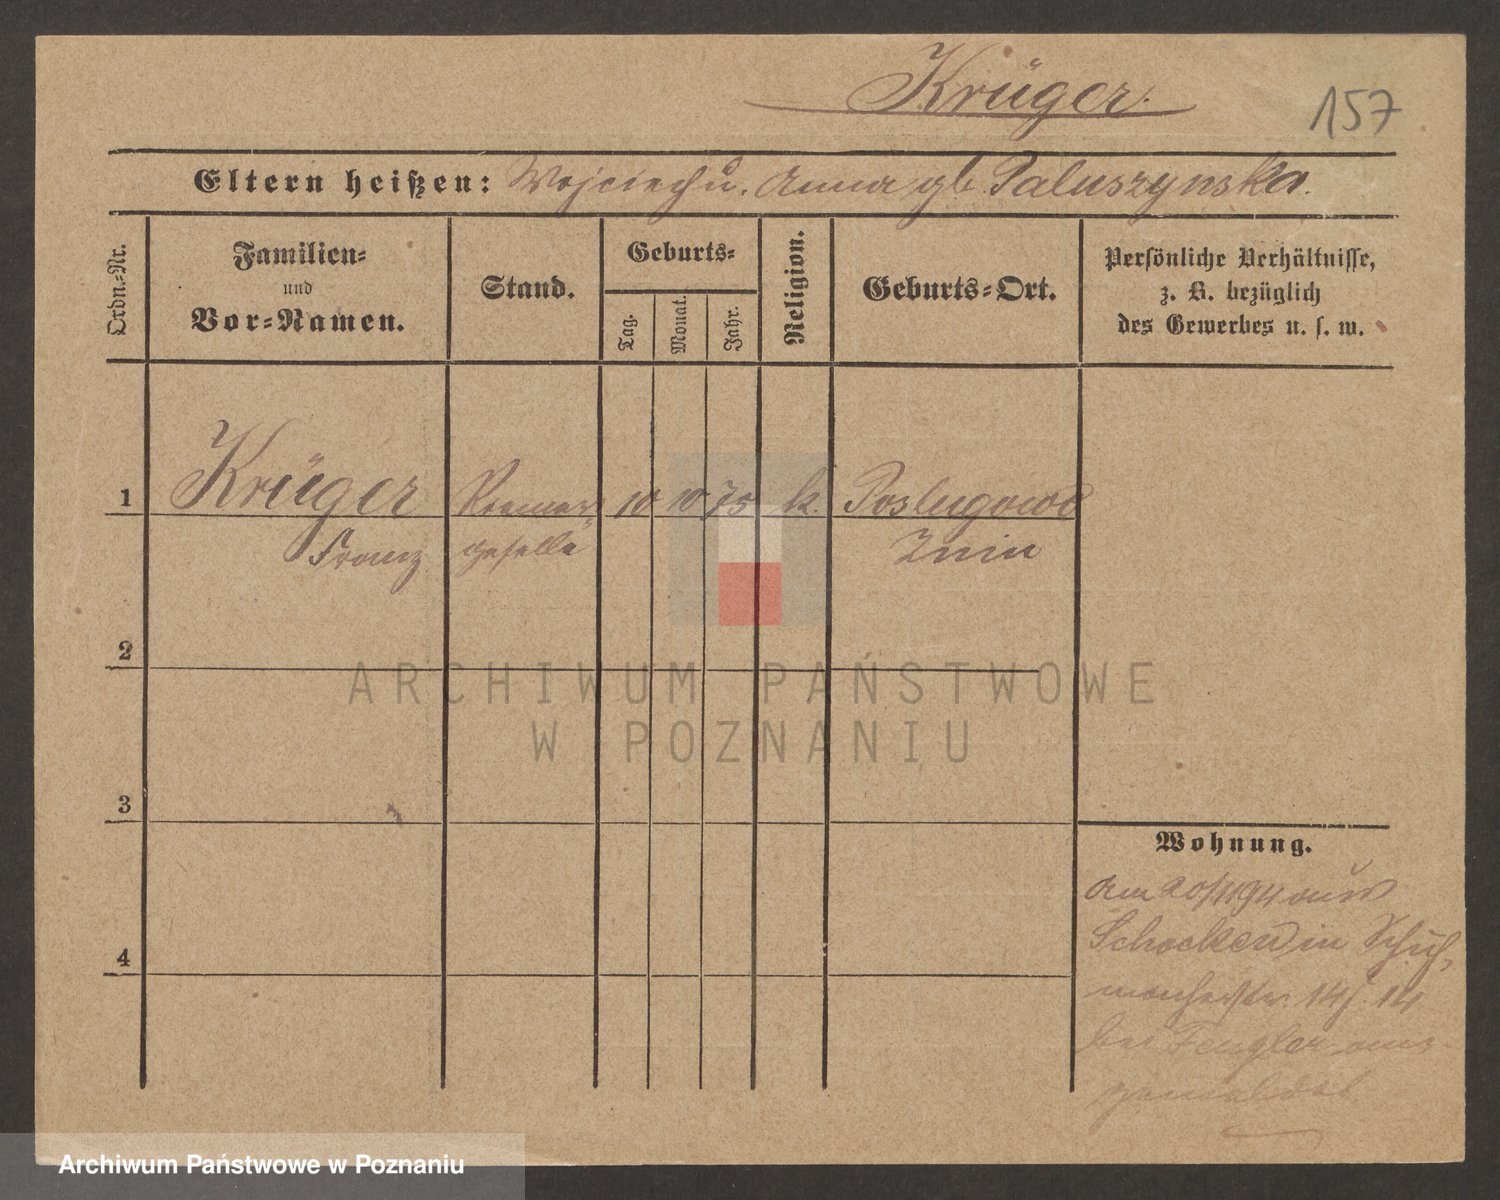 Krüger.
157
Eltern heißen: Wojciech u. Anna gb. Paluszynska.
Ordn.-Nr.
Familien-
und
Vor-Namen.
Stand.
Geburts-
Tag.
Monat.
Jahr.
Religion.
Geburts-Ort.
Persönliche Verhältnisse,
z. B. bezüglich
des Gewerbes u. s. w.
1 Krüger 10 10 75 k. Poslugowo
Franz geselle Znin
2
3
4
Wohnung.
am 20/11 94 aus
Schocken in Schuh-
macherstr. 14
bei Fengler an-
gemeldet.
ARCHIWUM PAŃSTWOWE
W POZNANIU
Archiwum Państwowe w Poznaniu